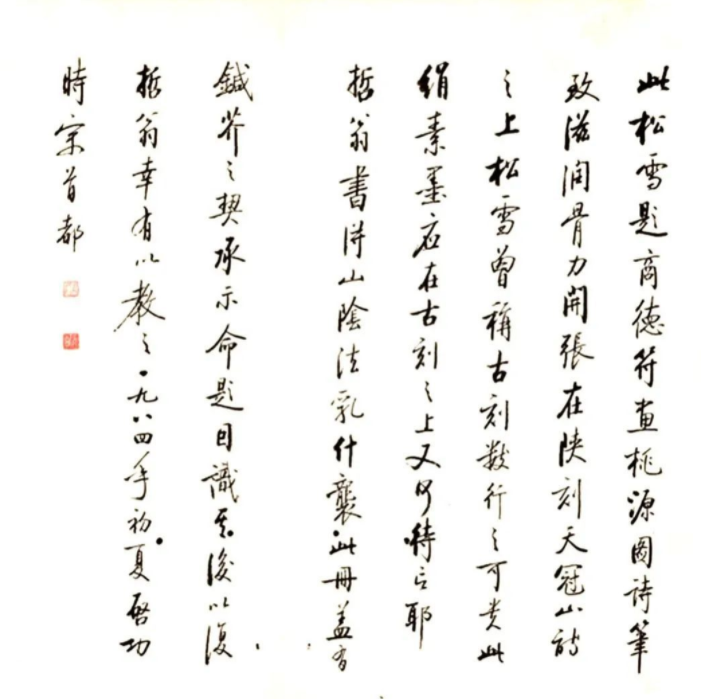 此松雪題商德符畫桃源圖詩筆
致滋潤骨力開張在陝刻天冠山詩
之上松雪曾稱古刻數行之可貴此
絹素墨迹在古刻之上又何待言耶
哲翁書得山陰法乳什襲此冊蓋有
鍼芥之契承示命題因識其後以復
哲翁幸有以教之一九八四年初夏啟功
時客首都